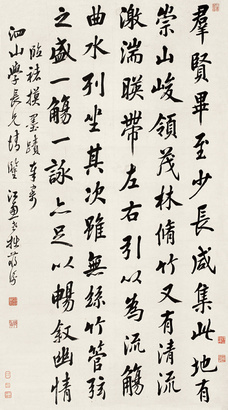 羣賢畢至少長咸集此地有
崇山峻領茂林脩竹又有清流
激湍暎帶左右引以為流觴
曲水列坐其次雖無絲竹管弦
之盛一觴一詠亦足以暢敘幽情
臨褚摸墨蹟奉寄
泗山學長兄清鑒